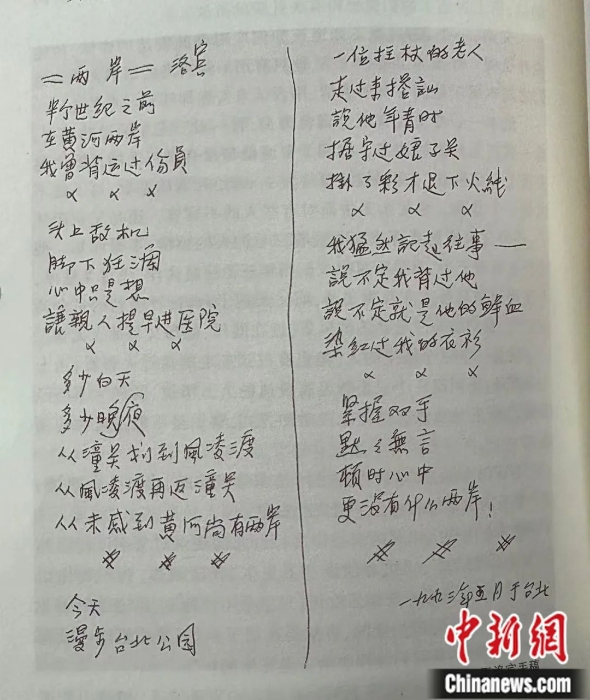 =两岸= 洛宾
半个世纪之前
在黄河两岸
我曾背运过伤員
× × ×
头上敌机
脚下狂澜
心中只是想
讓親人提早进医院
× × ×
多少白天
多少晚夜
从潼关划到風凌渡
从風凌渡再返潼关
从未感到黄河尚有两岸
※ ※ ※
今天
漫步台北公园
一位拄杖的老人
走过来搭訕
說他年青时
据守过娘子关
掛了彩才退下火線
× × ×
我猛然記起往事——
說不定我背过他
説不定就是他的鲜血
染红过我的衣衫
× × ×
紧握双手
默々無言
顿时心中
更没有什么两岸!
※ ※ ※
一九九三年五月于台北
中新网
Chinanews.com